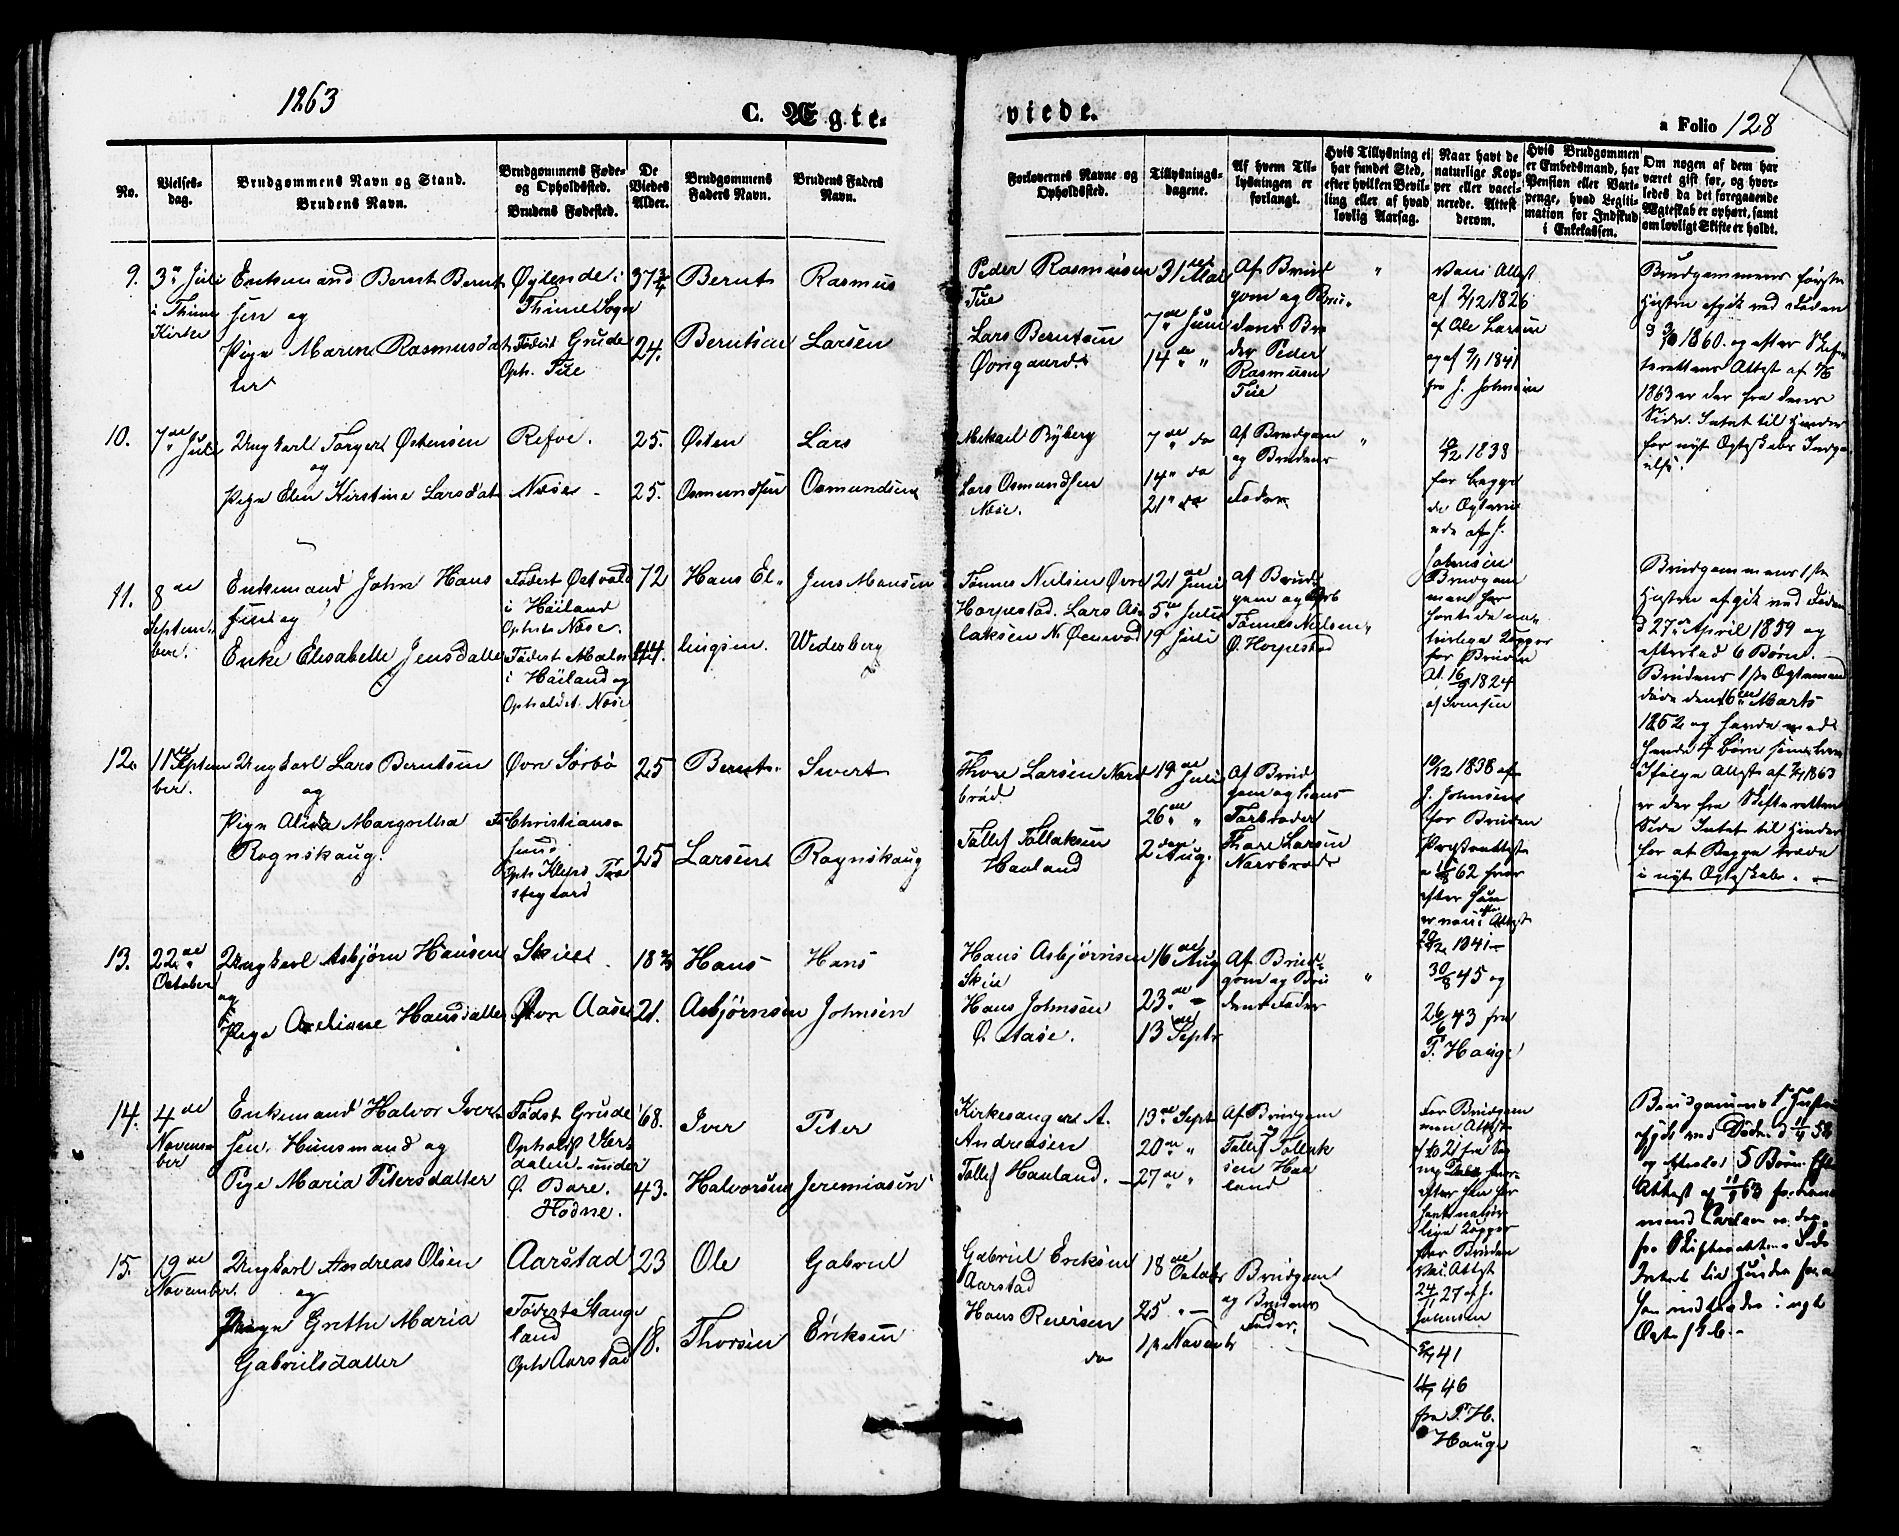 1863
C. Ægte-
viede.
a Folio 128
No.
Vielses-
dag.
Brudgommens Navn og Stand.
Brudens Navn.
Brudgommens Føde-
og Opholdssted.
Brudens Fødested.
De
Viedes
Alder.
Brudgommens
Faders Navn.
Brudens Faders
Navn.
Forlovernes Navne og
Opholdssted.
Tillysnings-
dagene.
Af hvem Til-
lysningen er
forlangt.
Hvis Tillysning ei
har fundet Sted,
efter hvilken Bevil-
ling eller af hvad
lovlig Aarsag.
Naar havt de
naturlige Kop-
per eller vacci-
nerede. Attest
derom.
Hvis Brudgommen
er Embedsmand, har
Pension eller Vart-
penge, hvad Legiti-
mation for Indskud
i Enkekassen.
Om nogen af dem har
været gift før, og hvor-
ledes da det foregaaende
Ægteskab er ophørt, samt
om lovligt Skifte er holdt.
9.
3de Juli
i Thime
Kirke
Enkemand Bernt Bernt
sen og
Pige Maren Rasmusdat
ter
Øylende i
Thime Sogn
Født Grude
Oph. Tue
37 3/4
24.
Bernt
Berntsen
Rasmus
Larsen
Peder Rasmusen
Tue
Lars Berntsen
Øvrgaard.
31te Mai
7de Juni
14de "
Af Brud
gom og Bru-
dens Bro
der Peder
Rasmusen
Tue
"
Vacc. Attest
af 2/12 1826
af Ole Larsen
og af 9/1 1841
fra J. Johnsen
Brudgommens første
Hustru afgik ved Døden
1860. og efter Skif-
terettens Attest af
1863 er der fra dens
Side Intet til Hinder
for nyt Ægteskabs Indga-
else.
10.
7de Juli
Ungkarl Torger Østensen
og
Pige Elen Kirstine Larsdat
Refve.
Næse
25.
25.
Østen
Osmundsen
Lars
Osmundsen
Mikail Byberg
Lars Osmundsen
Næse.
7de do
14" do
21" do
Af Brudgom
og Brudens
Fader
"
1838
for begge
de Ægtevi
ede af J.
Johnsen
11.
8de
Septem-
ber.
Enkemand John Hans
sen og
Enke Elisabeth Jensdatter
Fødest Østvold
i Høiland
Opholds Næse.
Fødest Mæle
i Høiland og
Opholdst. Næse
72
44.
Hans El-
lingsen.
Jens Monsen
Wederberg
Tønnes Nielsen Øvre
Horpestad. Lars As-
laksen N. Øxnevad
21de Juni
5te Juli
19 Juli
Af Brud
gom og
Tønnes Nielsen
Ø. Horpestad
"
Brudgom
men har
havt de na-
turlige Kopper
for Bruden
At. 16/9 1824
af Svensen
Brudgommens 1ste
Hustru afgik ved Døden
d 27de April 1859 og
efterlod 6 Børn.
Brudens 1ste Ægtemand
døde den 16de Marts
1852 og havde med
hende 4 Børn
Ifølge Attest af 1863
er der fra Skifteretten
Side Intet til Hinder
for at Begge træde
i nyt Ægteskab.
12.
11 Septem
ber.
Ungkarl Lars Berntsen
og
Pige Alida Margretha
Rognskaug.
Øvre Sørbø
Christians-
sund
Oph. Klepp Præ
stegaard
25
25
Bernt
Larsen
Sivert
Rognskaug
Thore Larsen Nær
brød.
Tollef Tollaksen
Haaland
19de Juli
26de "
2den Aug.
Af Brud
gom og hans
Farbroder
Thore Larsen
Nærbrøde
19/12 1838 af
J. Johnsen
for Bruden
Præsteattest
62 hvor
efter hun
er vacc. efter Attest
1841
13.
22de
October
Ungkarl Asbjørn Hansen
og
Pige Axeliane Hansdatter
Skiee
Øvre Aase
18
21.
Hans
Asbjørnsen
Hans
Johnsen
Hans Asbjørnsen
Skie
Hans Johnsen
Ø. Aase.
16de Aug
23de -
13de Septr
Af Brud-
gom og Bru
dens Fader
"
30/8 45 og
26/6 43 fra
T. Hauge
14.
4de
Novem-
ber
Enkemand Halvor Iver-
sen. Huusmand og
Pige Maria Petersdatter
Født Grude
Opholdst Vers
dalen under
Ø. Bore.
Hodne.
68.
43.
Iver
Halvorsen
Peter
Jeremiasen
Kirkesanger A.
Andreasen
Tollef Haaland.
13de Sept
20de "
27de "
Af Brudgom
og
Tollef Tollak
sen Haa
land
For Brudgom
men Attest
21 fra Sog
nepr.
efter han har
havt natur-
lige Kopper
for Bruden
Vac. Attest
24/11 27 af J.
Johnsen
Brudgommens 1ste Hustru
afgik ved Døden d 58
og efterlod 5 Børn. Efter
Attest af 63
er der
fra Skifteretten Side
Intet til Hinder for at
han indtræder i nyt
Ægteskab.
15.
19de
November.
Ungkarl Andreas Olsen
og
Pige Grethe Maria
Gabrielsdatter
Aarstad
Fødest Stange
land
Oph. Aarstad
23
18.
Ole
Thorsen
Gabriel
Eriksen
Gabriel Eriksen
Aarstad
Hans Reiersen
do
18de Octobr
25 " -
1ste Novembr
Brudgom
og Brudens
Fader.
41
46
fra T. H.
Hauge